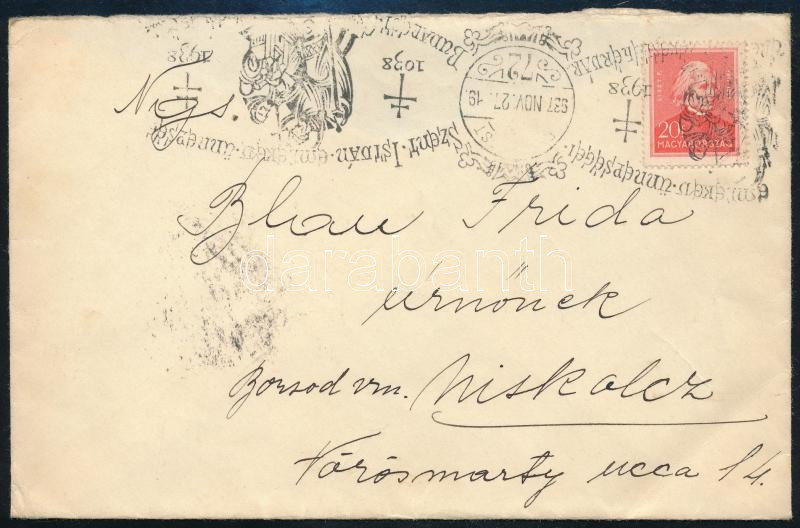 Szent · István · emlékév · ünnepségei
1038
1938
72
937 NOV. 27. 19
1938
LISZT F.
20
MAGYARORSZÁG
Ngs.
Blau Frida
úrnőnek
Borsod vm. Miskolcz
Vörösmarty ucca 14.
darabanth